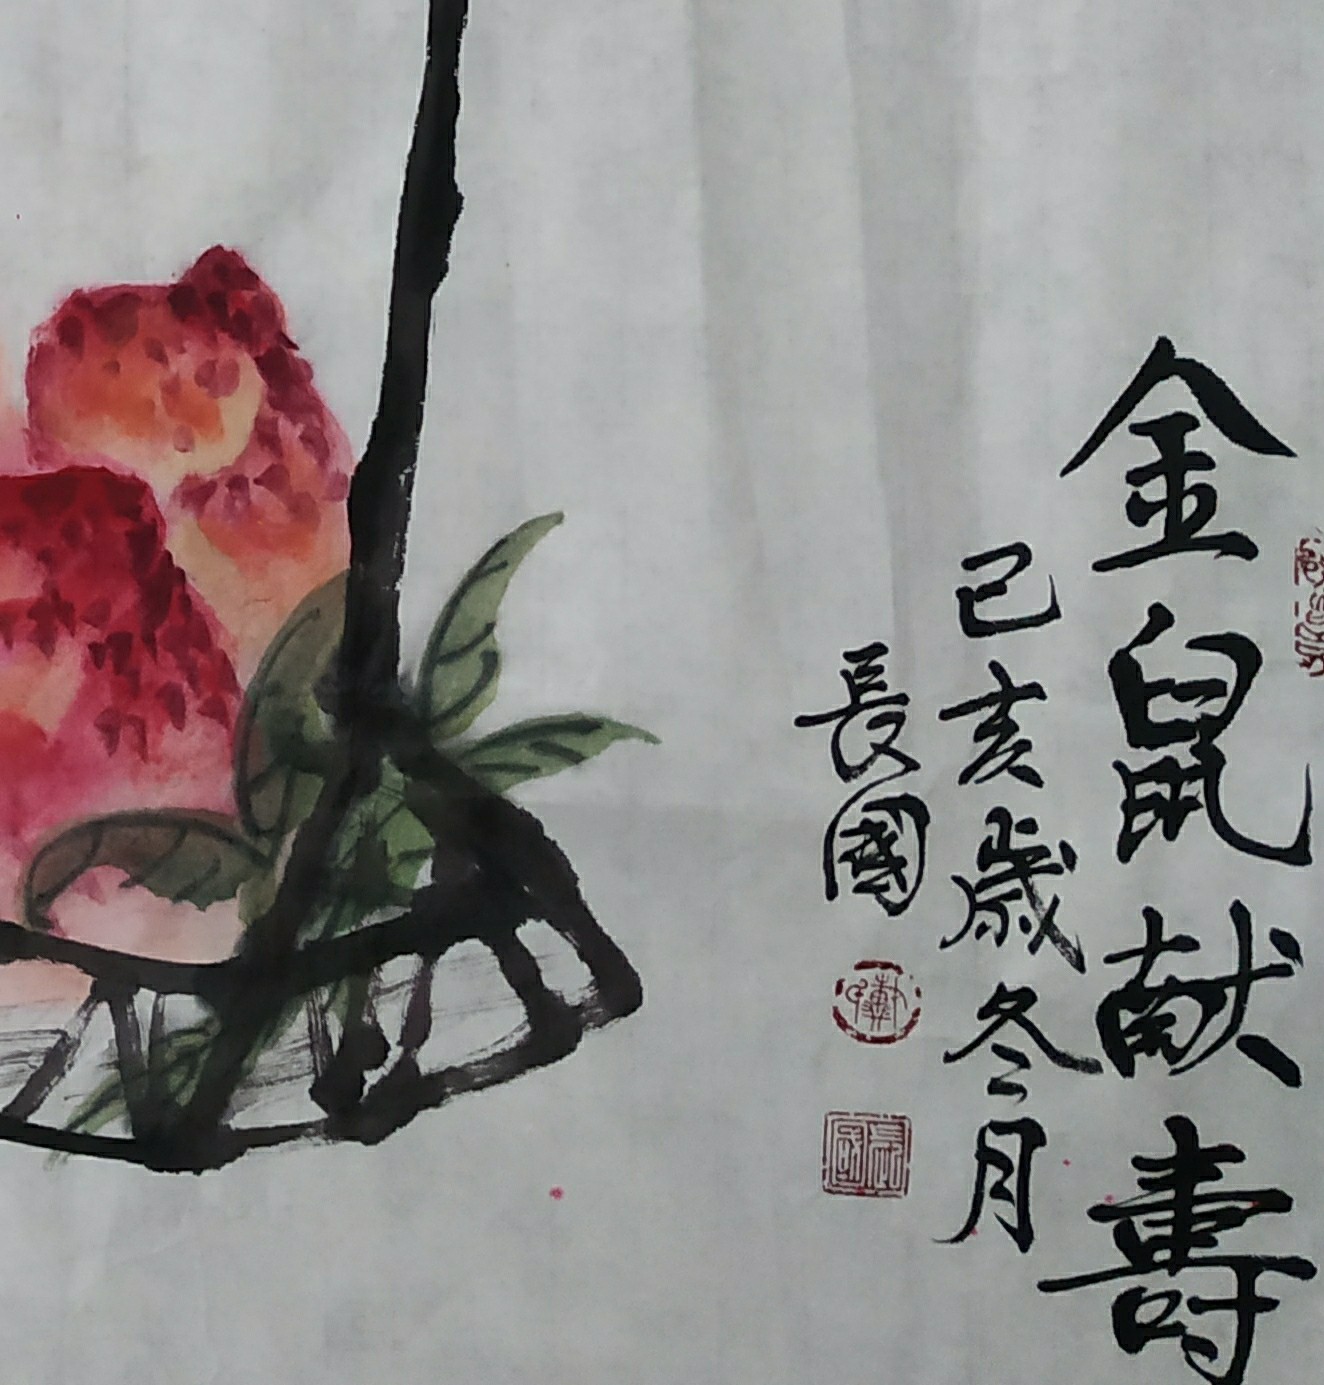 金鼠献壽
己亥歲冬月
長國
長國